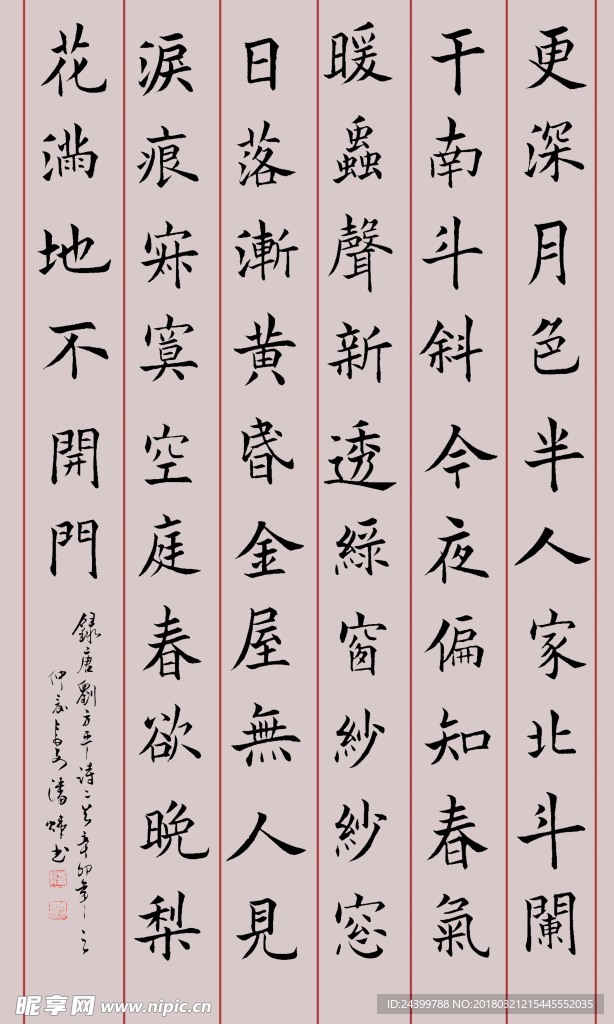 更深月色半人家北斗闌
干南斗斜今夜偏知春氣
暖蟲聲新透綠窗紗紗窓
日落漸黄昬金屋無人見
淚痕寂寞空庭春欲晚梨
花滿地不開門
錄唐劉方平詩二首辛卯年之
仲夏潘书
昵享网 www.nipic.cn
ID:24399788 NO:20180321215445552035